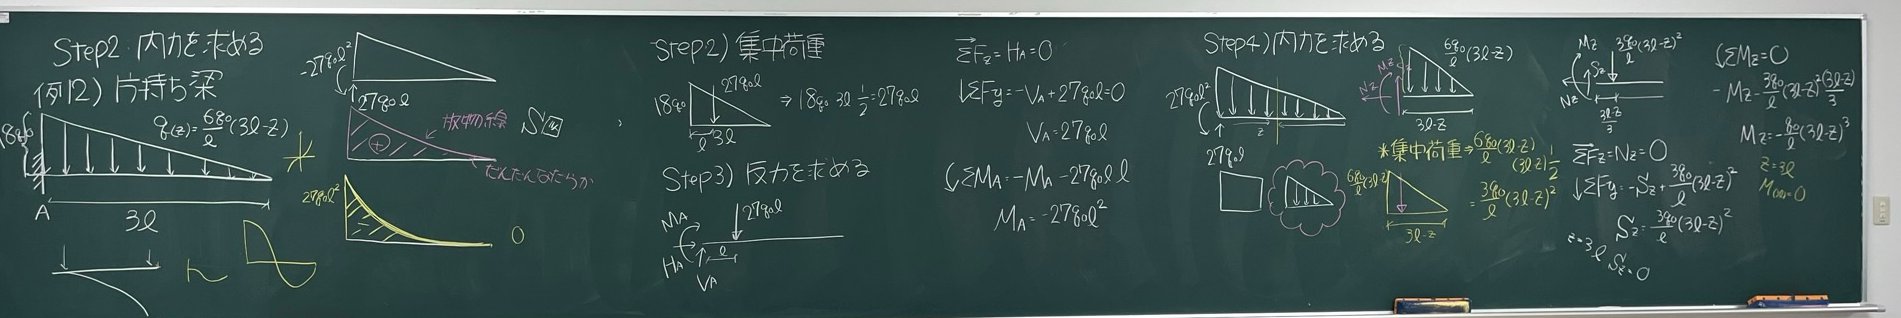 Step2 内力を求める
例12) 片持ち梁
18q₀
q(z)=6q₀/l(3l-z)
A
3l
-27q₀l²
27q₀l
放物線
だんだんなだらか
⊕
S図
27q₀l²
0
Step2) 集中荷重
18q₀
27q₀l
l
3l
⇒ 18q₀ 3l 1/2=27q₀l
Step3) 反力を求める
MA
27q₀l
HA
l
VA
ΣFz=HA=0
↓ΣFy=-VA+27q₀l=0
VA=27q₀l
ΣMA=-MA-27q₀l l
MA=-27q₀l²
Step4) 内力を求める
27q₀l²
27q₀l
z
Mz
Nz
6q₀/l(3l-z)
3l-z
*集中荷重⇒6q₀/l(3l-z)(3l-z)1/2
=3q₀/l(3l-z)²
6q₀/l(3l-z)
3l-z
Mz
Sz
Nz
3q₀/l(3l-z)²
3l-z/3
ΣFz=Nz=0
↓ΣFy=-Sz+3q₀/l(3l-z)²
Sz=3q₀/l(3l-z)²
z=3l
Sz=0
ΣMz=0
-Mz-3q₀/l(3l-z)²(3l-z)/3
Mz=-q₀/l(3l-z)³
z=3l